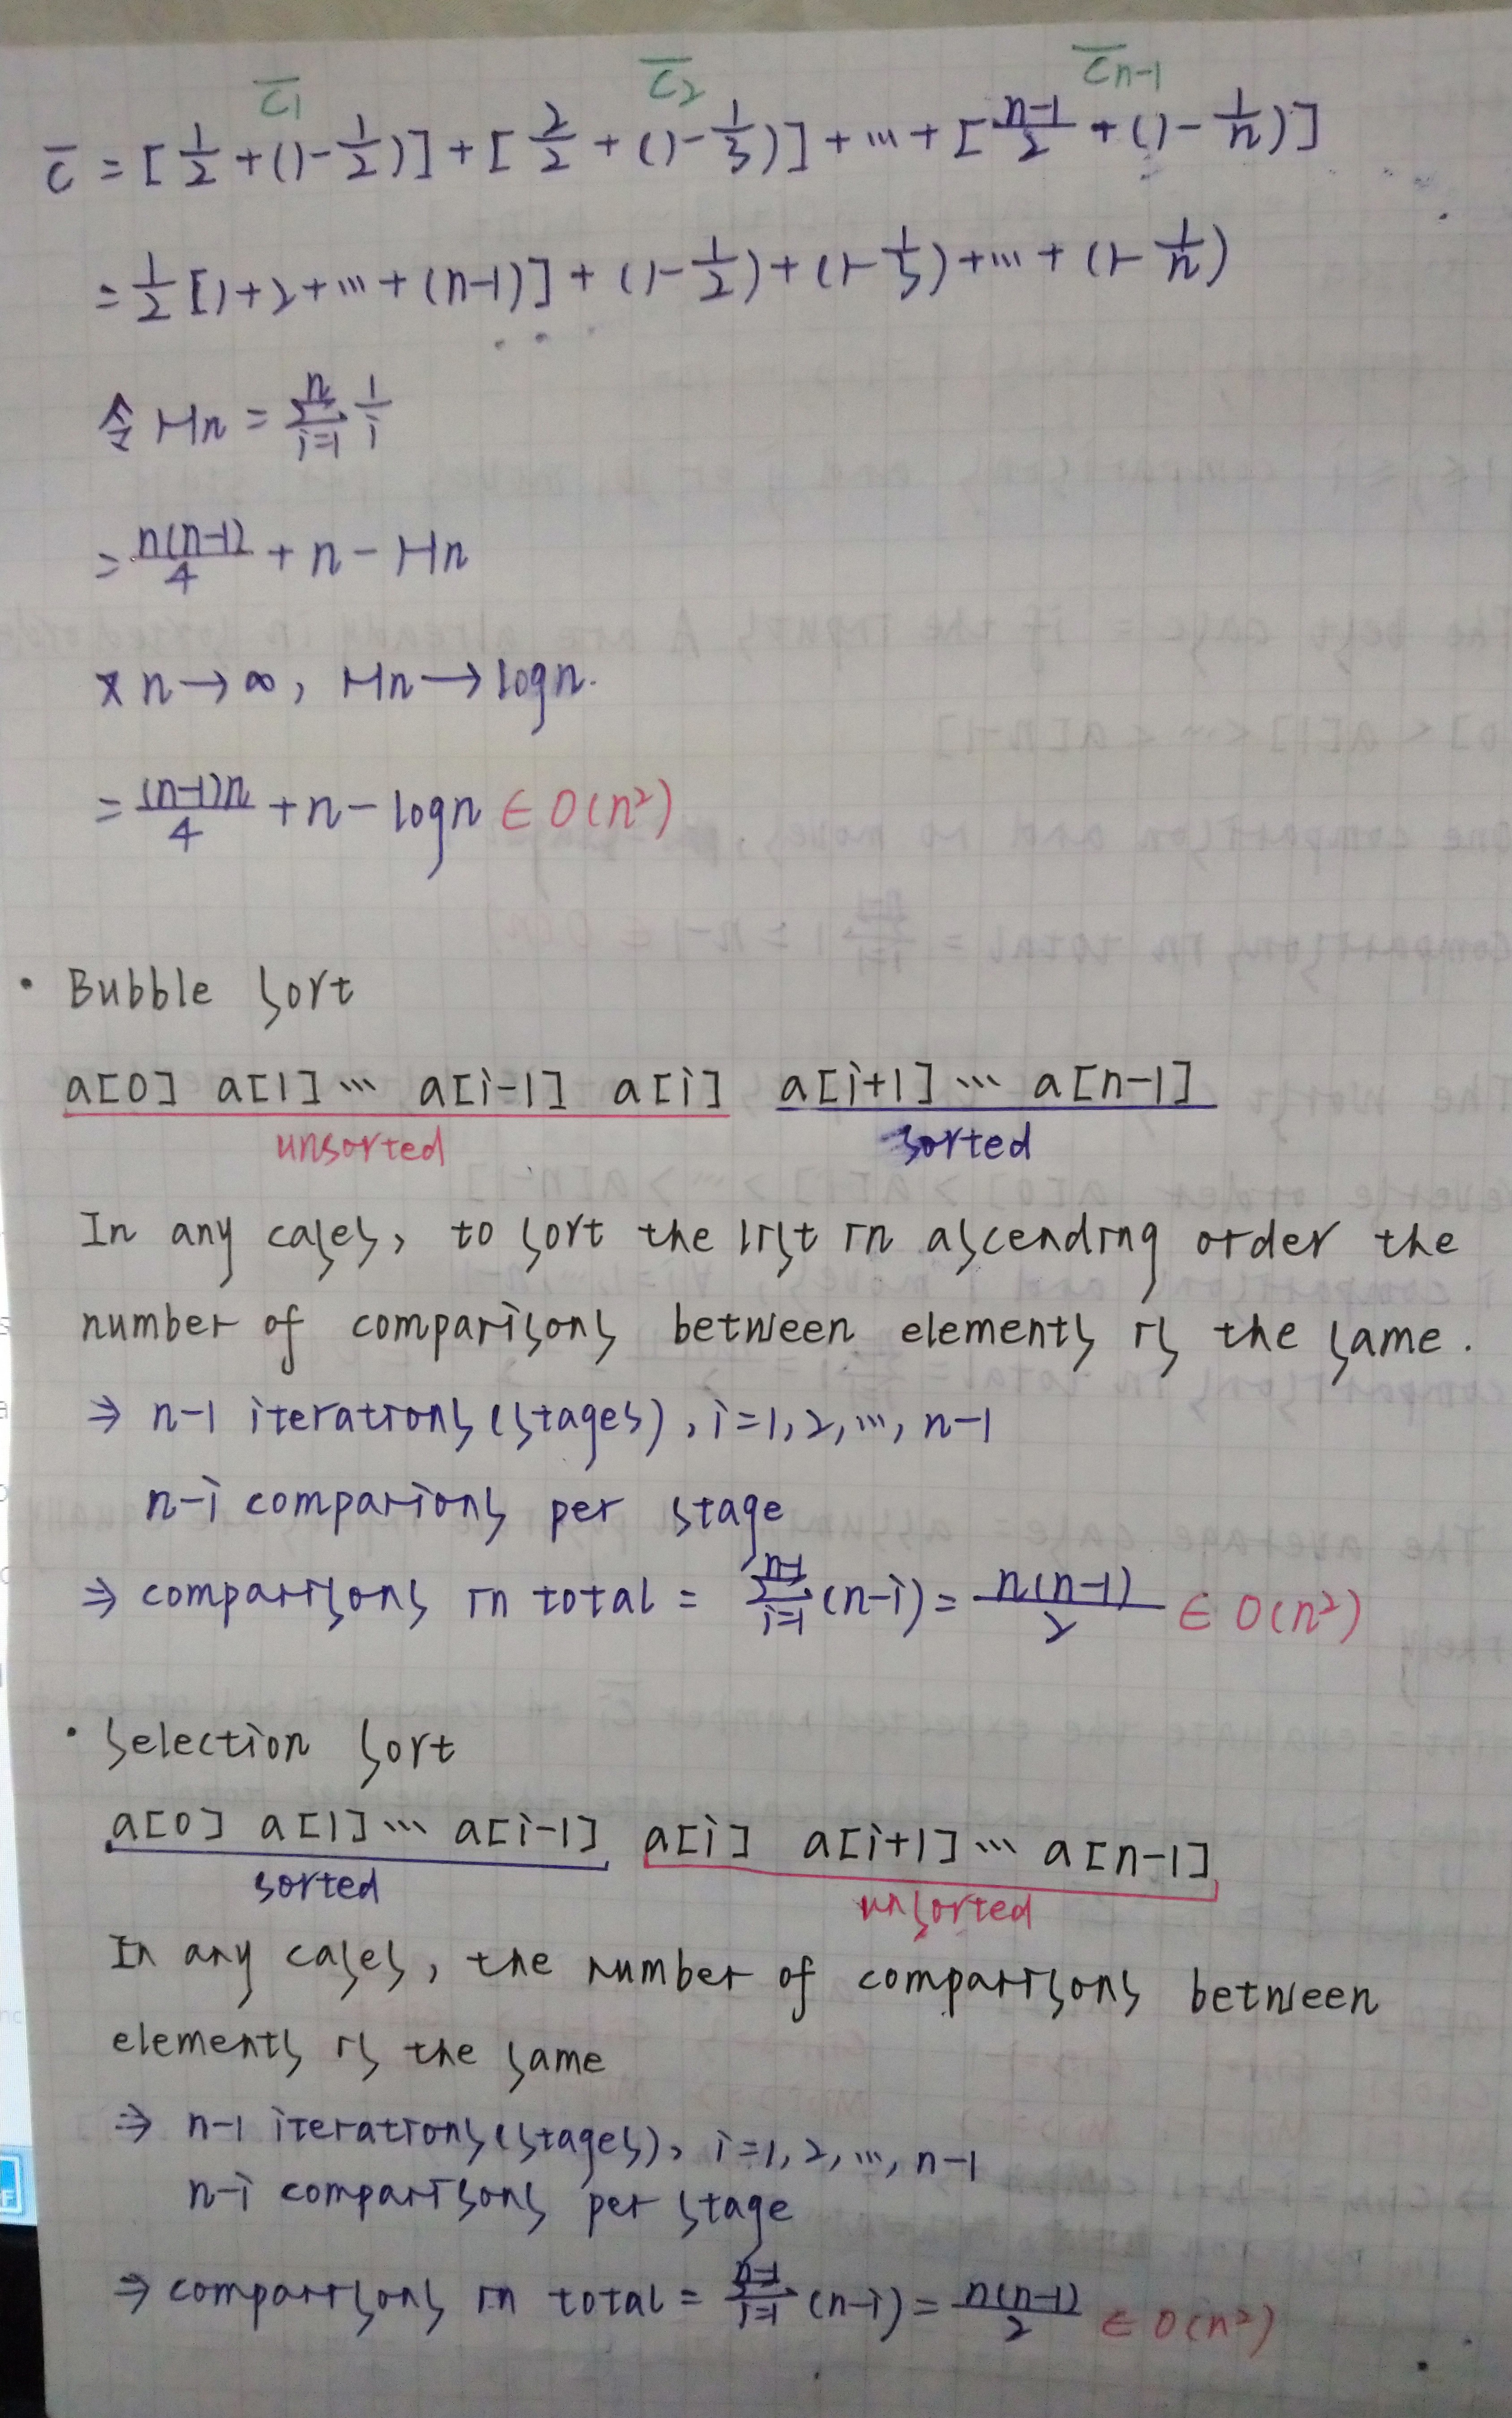 c̅1 c̅2 c̅n-1
c̅ = [1/2 + (1 - 1/2)] + [2/2 + (1 - 1/3)] + ... + [n-1/2 + (1 - 1/n)]
= 1/2 [1 + 2 + ... + (n-1)] + (1 - 1/2) + (1 - 1/3) + ... + (1 - 1/n)
令 Hn = Σ_{i=1}^{n} 1/i
= n(n-1)/4 + n - Hn
* n → ∞, Hn → logn.
= (n-1)n/4 + n - logn ∈ O(n²)
• Bubble sort
a[0] a[1] ... a[i-1] a[i] a[i+1] ... a[n-1]
unsorted sorted
In any cases, to sort the list in ascending order the
number of comparisons between elements is the same.
⇒ n-1 iterations (stages), i=1, 2, ..., n-1
n-i comparions per stage
⇒ comparisons in total = Σ_{i=1}^{n-1} (n-i) = n(n-1)/2 ∈ O(n²)
• Selection sort
a[0] a[1] ... a[i-1] a[i] a[i+1] ... a[n-1]
sorted unsorted
In any cases, the number of comparisons between
elements is the same
⇒ n-1 iterations (stages), i=1, 2, ..., n-1
n-i comparisons per stage
⇒ comparisons in total = Σ_{i=1}^{n-1} (n-i) = n(n-1)/2 ∈ O(n²)